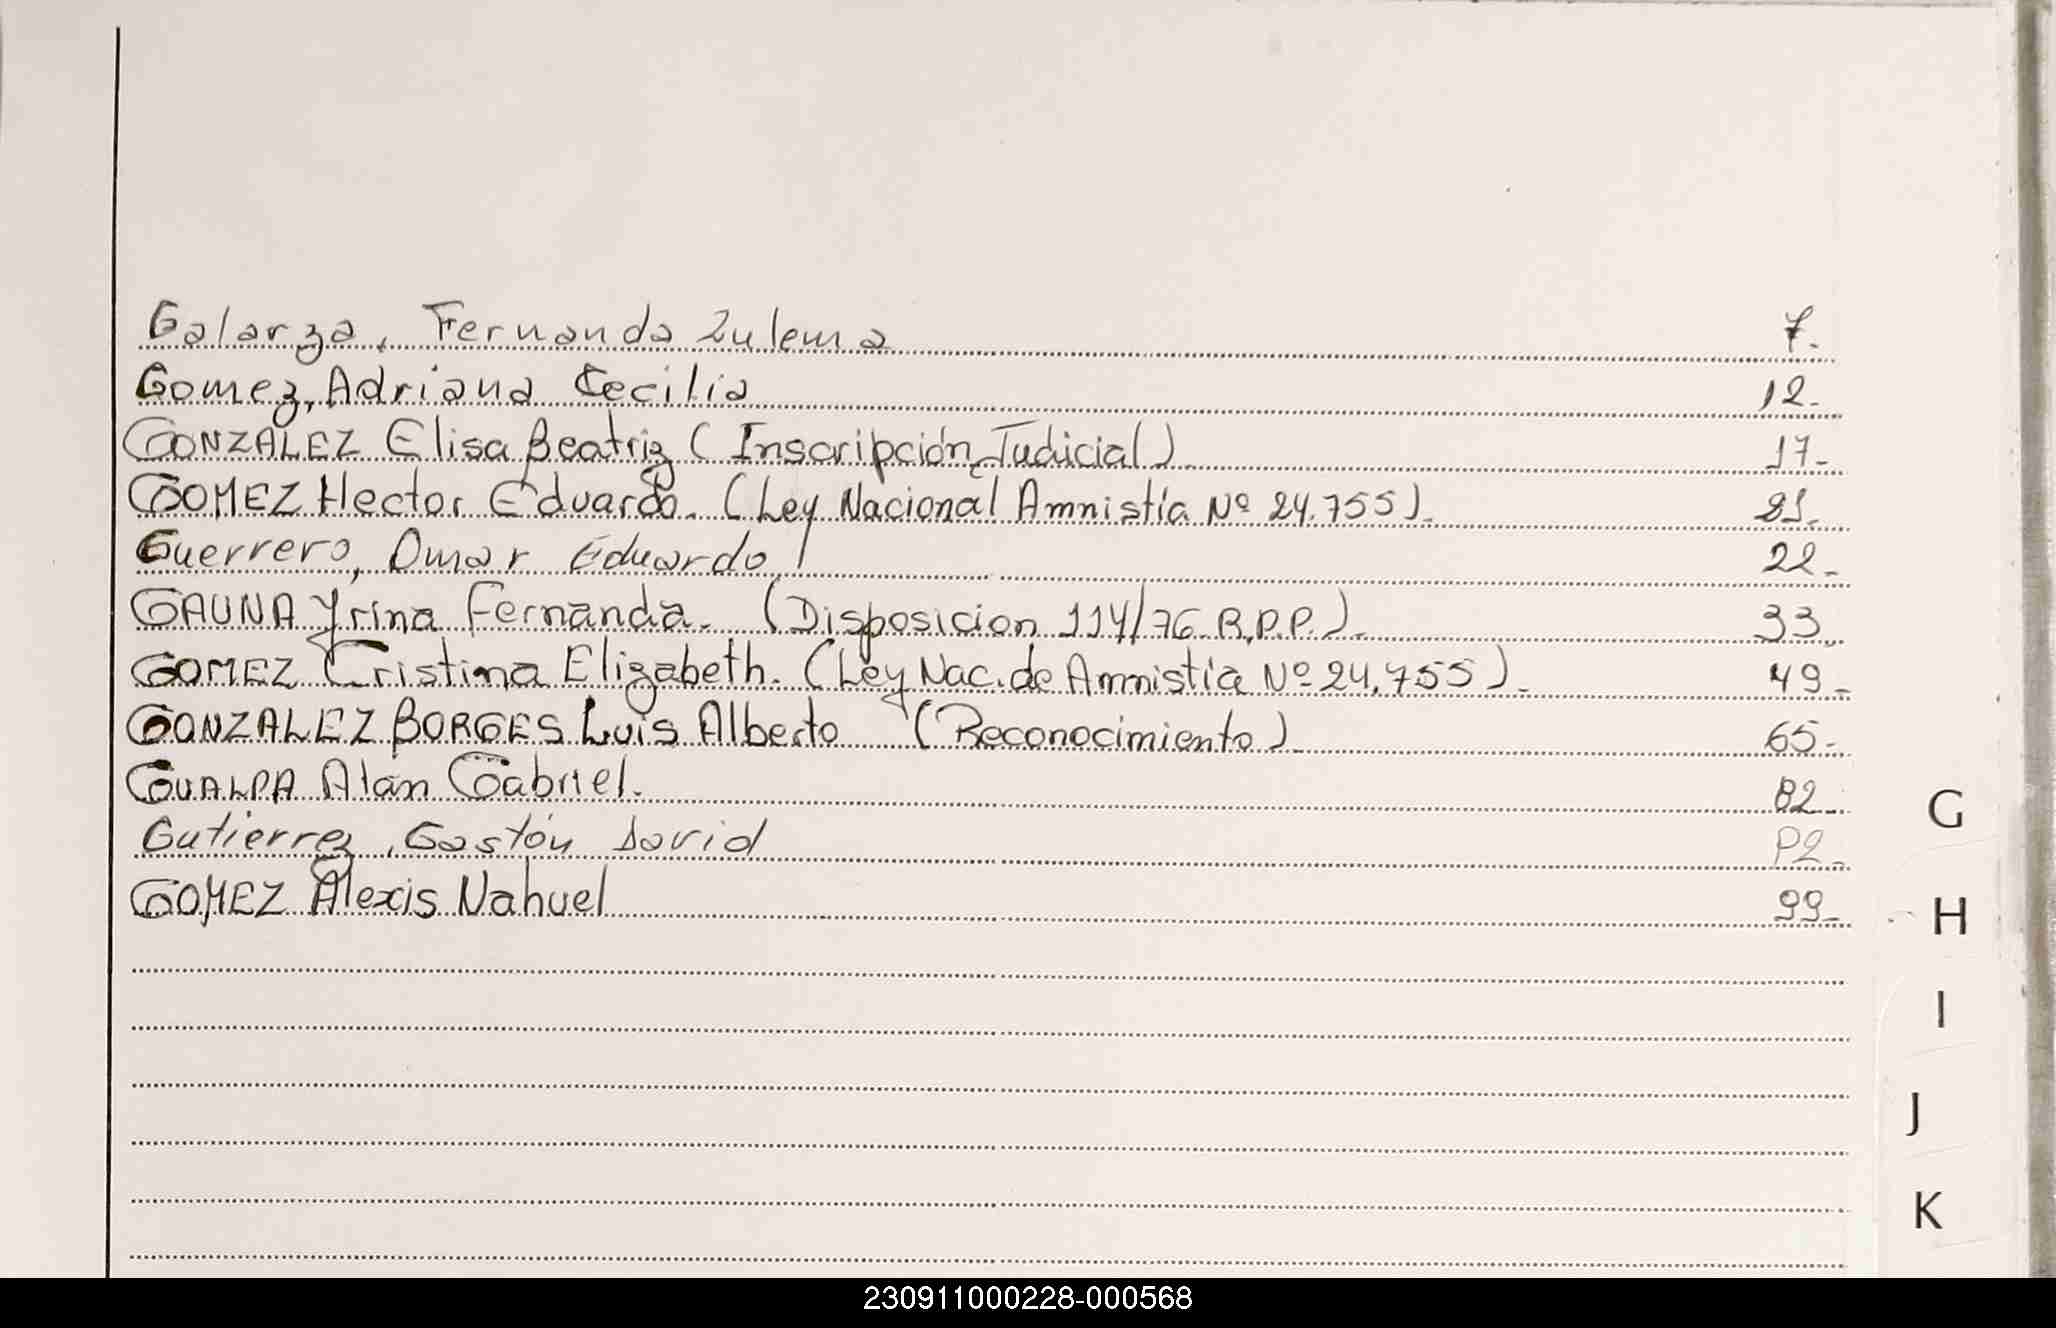 Galarza, Fernanda Zulema 7.
Gomez, Adriana Cecilia 12-
GONZALEZ Elisa Beatriz (Inscripción Judicial)- 17-
GOMEZ Hector Eduardo. (Ley Nacional Amnistía Nº 24.755)- 21-
Guerrero, Omar Eduardo 22-
GAUNA Yrina Fernanda. (Disposicion 114/76 R.P.P.)- 33-
GOMEZ Cristina Elizabeth. (Ley Nac. de Amnistia Nº 24.755)- 49-
GONZALEZ BORGES Luis Alberto (Reconocimiento)- 65-
GUALPA Alan Gabriel. 82-
G
Gutierrez, Gastón David
GOMEZ Alexis Nahuel 99-
H
I
J
K
230911000228-000568